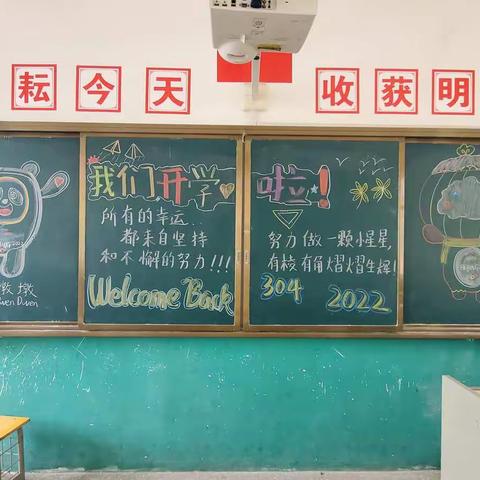 耘今天收获明
我们开学啦！
所有的幸运...
都来自坚持
和不懈的努力!!!
Welcome Back
努力做一颗小星星,
有棱有角熠熠生辉!
304 2022
墩